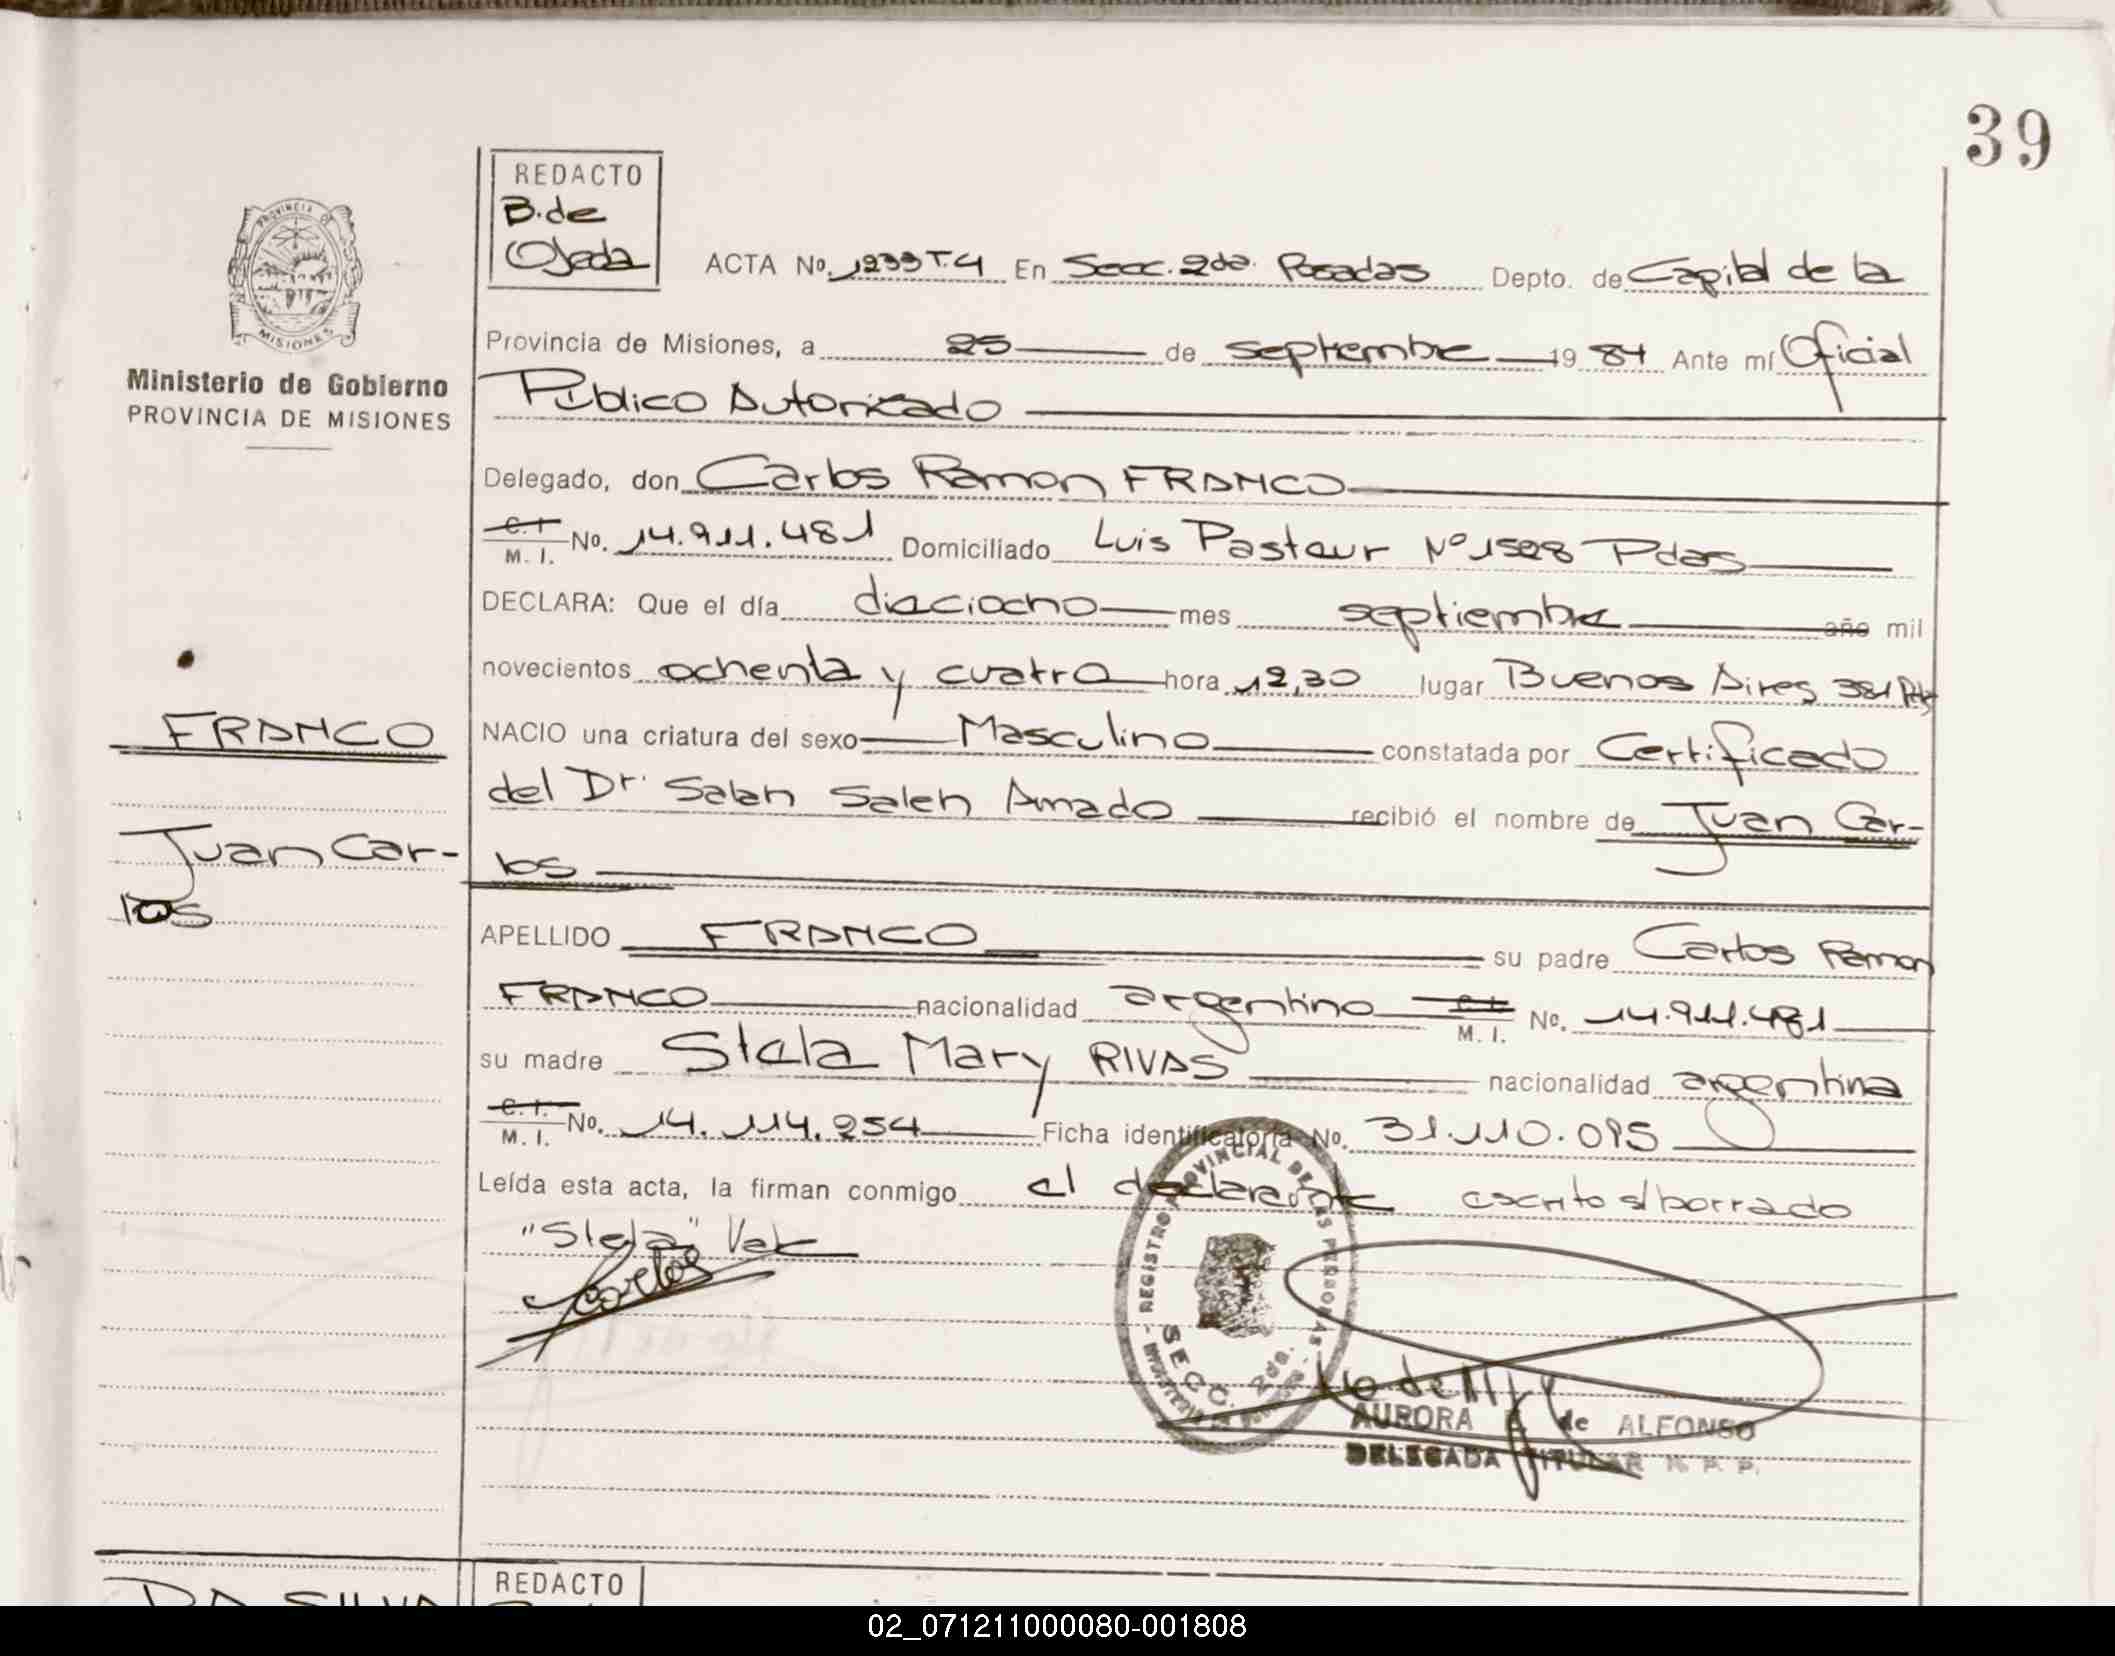 39
PROVINCIA DE
MISIONES
Ministerio de Gobierno
PROVINCIA DE MISIONES
REDACTO
B. de
Ojeda
ACTA No. 1233 T.4 En Secc. 2da. Posadas Depto. de Capital de la
Provincia de Misiones, a 25 de septiembre 19 84 Ante mí Oficial
Público Autorizado
Delegado, don Carlos Ramon FRANCO
C.I.
M. I. No. 14.911.481 Domiciliado Luis Pasteur Nº 1528 Pdas
DECLARA: Que el día dieciocho mes septiembre año mil
novecientos ochenta y cuatro hora 12,30 lugar Buenos Aires 381 Pdas
NACIO una criatura del sexo Masculino constatada por Certificado
del Dr. Salah Saleh Amado recibió el nombre de Juan Car-
los
APELLIDO FRANCO su padre Carlos Ramon
FRANCO nacionalidad argentino C.I.
M. I. No. 14.911.481
su madre Stela Mary RIVAS nacionalidad argentina
C.I.
M. I. No. 14.114.254 Ficha identificatoria No. 31.110.095
Leída esta acta, la firman conmigo el declarante escrito s/borrado
"Stela" Vale
FRANCO
Juan Car-
los
REGISTRO PROVINCIAL DE LAS PERSONAS
SECC. 2da.
AURORA de ALFONSO
DELEGADA TITULAR R. P. P.
DA SILVA
REDACTO
02_071211000080-001808